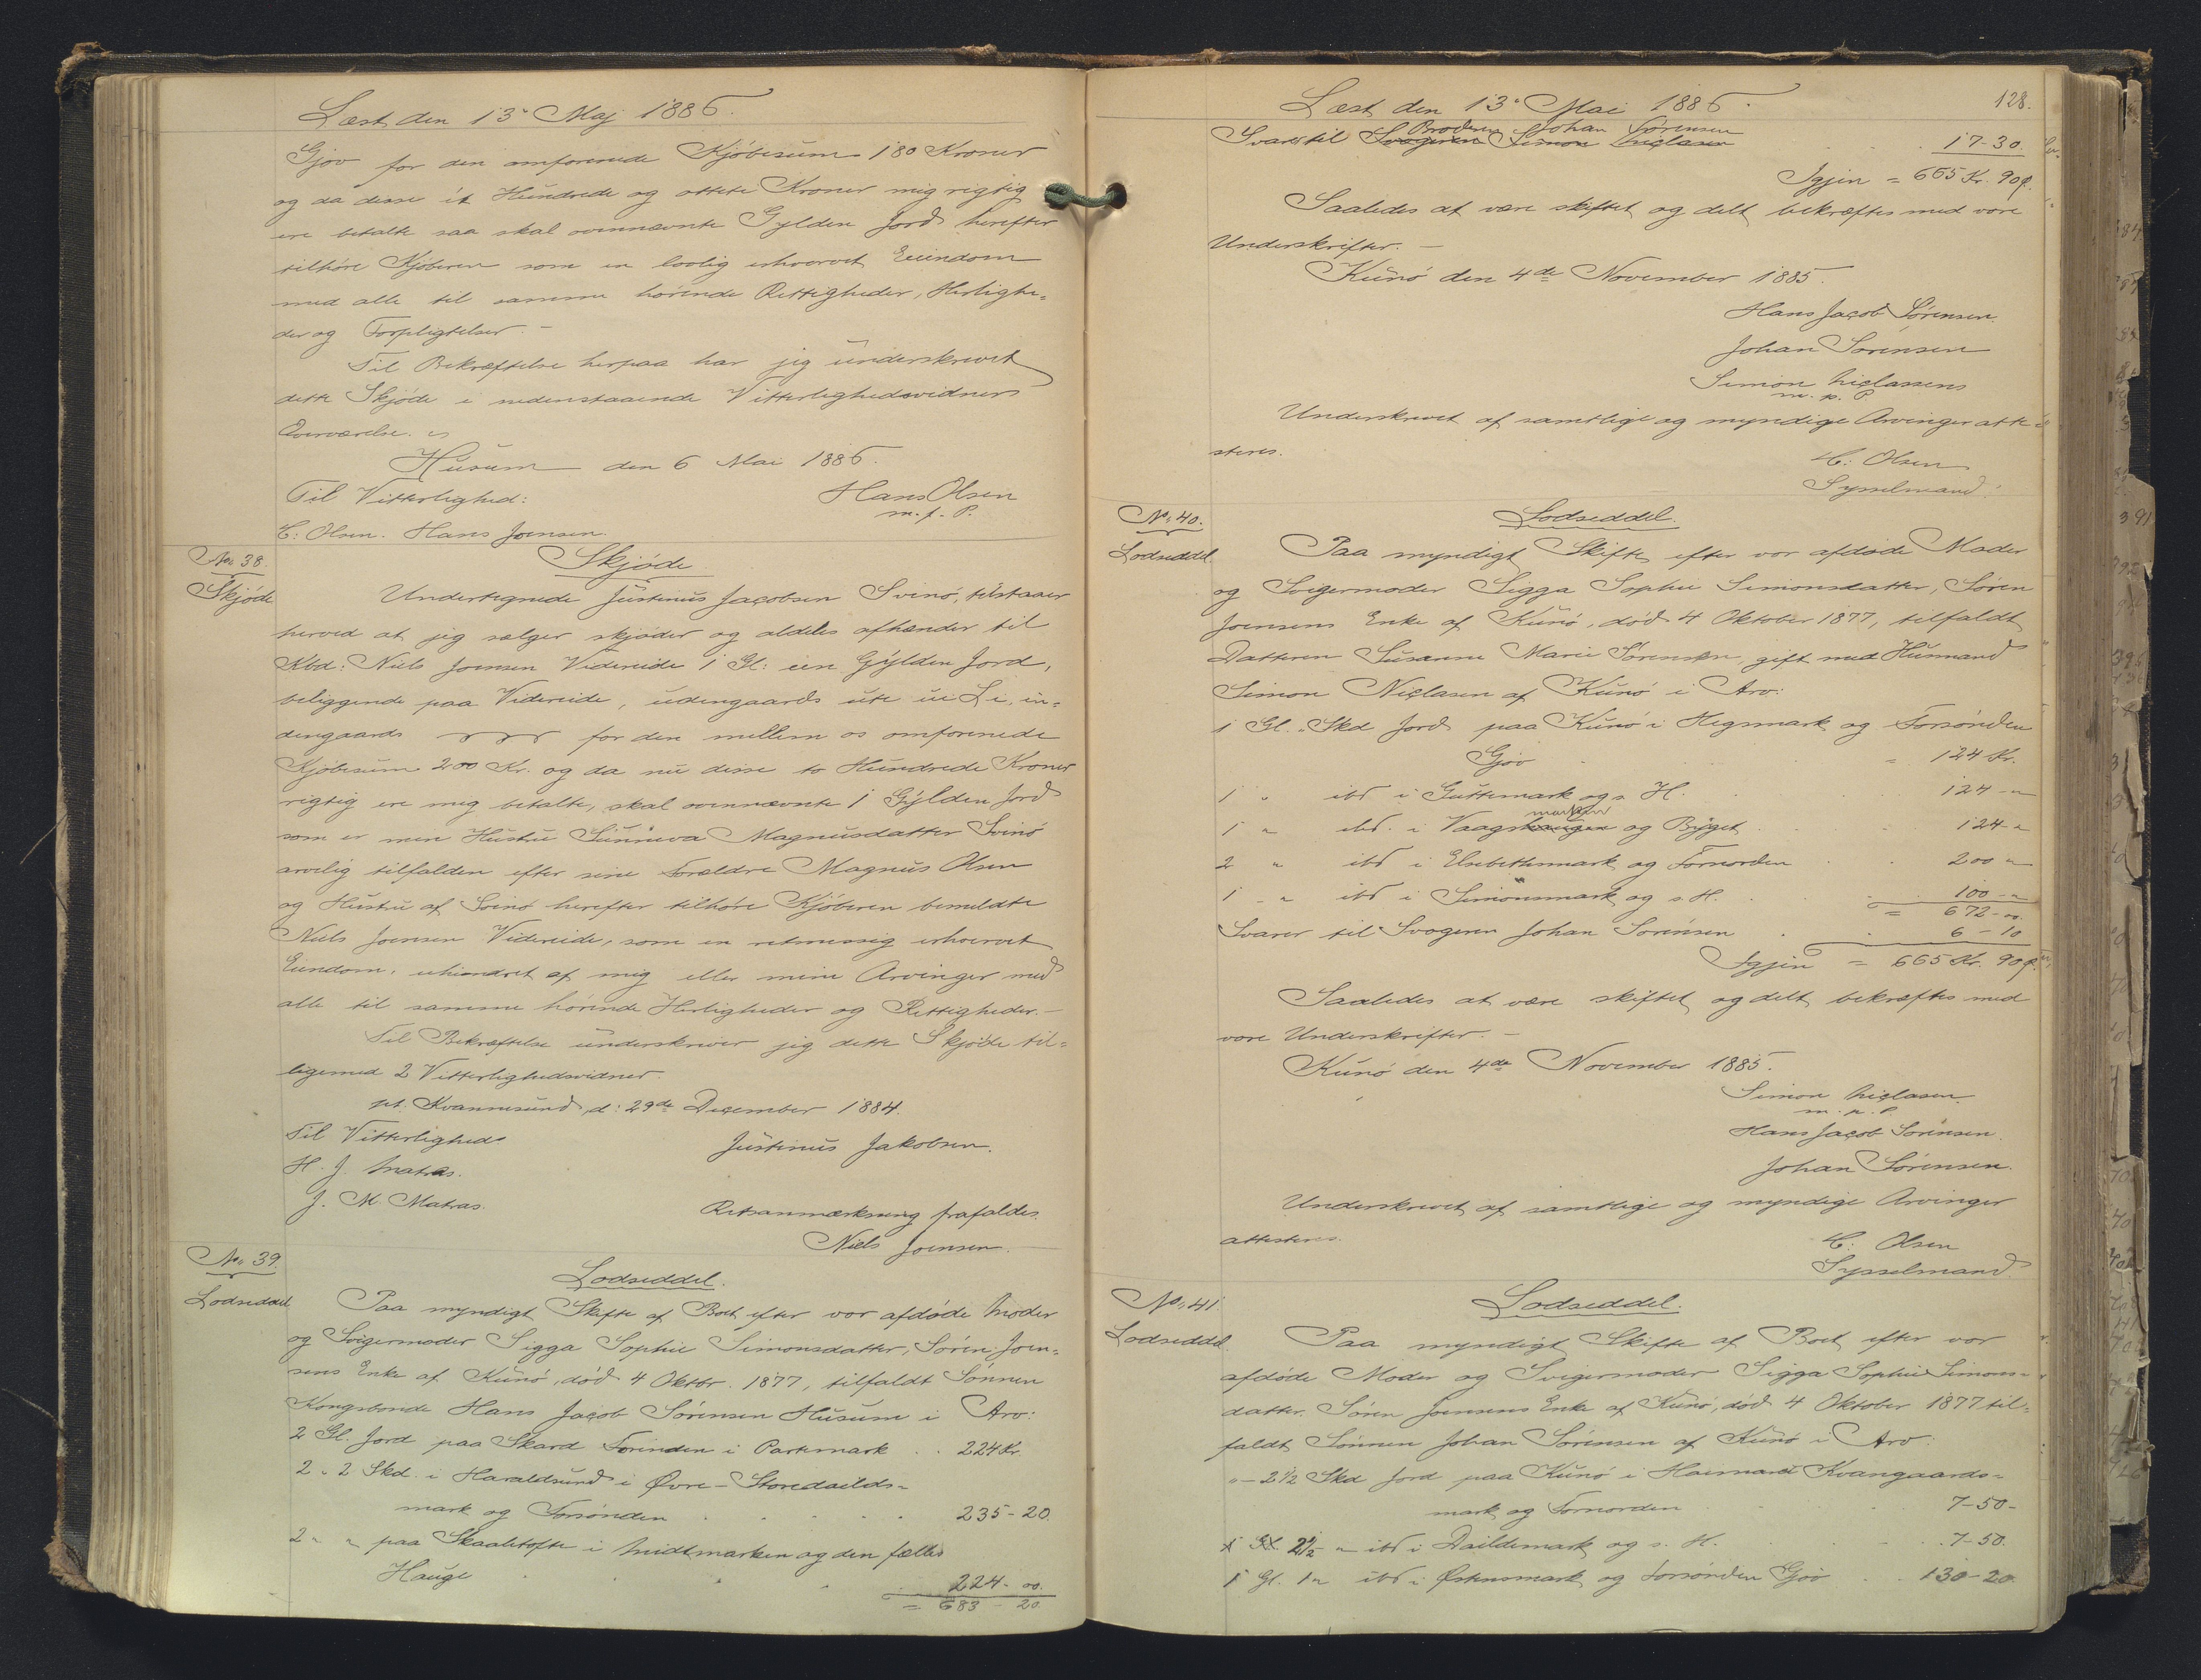 Læst den 13' Maj 1886.
Gjov for den omforenede Kjöbesum 180 Kroner
og da disse ét Hundrede og ottete Kroner mig rigtig
ere betalte saa skal ovennævnte Gylden Jord herefter
tilhøre Kjøberen som en lovlig erhvervet Eiendom
med alle til samme hørende Rettigheder, Herlighe=
der og Forpligtelser. -
Til Bekræftelse herpaa har jeg underskrevet
dette Skjøde i nedenstaaende Vitterlighedsvidners
Overværelse.
Husum den 6 Mai 1886.
Til Vitterlighed: Hans Olsen
m. f. P.
C: Olsen. Hans Joensen.
No. 38.
Skjøde
Skjøde
Undertegnede Justinus Jacobsen Svinø, tilstaaer
herved at jeg sælger skjøder og aldeles afhænder til
Kbd: Niels Joensen Videreide 1 Gl: een Gylden Jord,
beliggende paa Videreide, udengaards ute ui Li, in=
dengaards for den mellem os omforenede
Kjøbesum 200 Kr. og da nu disse to Hundrede Kroner
rigtig ere mig betalte, skal ovennævnte 1 Gylden Jord
som er min Hustru Sunneva Magnusdatter Svinø
arvelig tilfalden efter sine Forældre Magnus Olsen
og Hustru af Svinø herefter tilhøre Kjøberen bemeldte
Niels Joensen Videreide, som en retmessig erhvervet
Eiendom, uhindret af mig eller mine Arvinger med
alle til samme hørende Herligheder og Rettigheder. -
Til Bekræftelse underskriver jeg dette Skjøde til=
ligemed 2 Vitterlighedsvidner.
pt. Kvannesund, d: 29de December 1884.
Til Vitterlighed: Justinus Jakobsen.
H. J. Matras.
J. M. Matras.
Retsanmærkning frafaldes.
Niels Joensen.
No. 39.
Lodseddel
Lodseddel.
Paa myndigt Skifte af Boet efter vor afdøde Moder
og Svigermoder Sigga Sophie Simonsdatter, Søren Joen=
sens Enke af Kunø, død 4 Oktbr. 1877, tilfaldt Sønnen
Kongsbonde Hans Jacob Sørensen Husum i Arv:
2 Gl. Jord paa Skard Forinden i Partemark . . 224 Kr
2 " 2 Skd. i Haraldsund i Øvre-Storedailds=
mark og Forsønden . . . . . 235-20.
2 " " paa Skaaletofte i Midtmarken og den fælles
Hauge . . . 224- 00.
= 683 - 20.
128.
Læst den 13' Mai 1886.
Broderen Johan Sørensen
Svarer til Svogeren Simon Niclasen . . . 17-30.
Igjen = 665 Kr. 90 Ø.
Saaledes at være skiftet og delt bekræftes med vore
Underskrifter. -
Kunø den 4de November 1885.
Hans Jacob Sørensen.
Johan Sørensen
Simon Niclassens
m. p. P
Underskrevet af samtlige og myndige Arvinger atte=
steres.
C: Olsen
Sysselmand.
No. 40.
Lodseddel.
Lodseddel.
Paa myndigt Skifte efter vor afdøde Moder
og Svigermoder Sigga Sophie Simonsdatter, Søren
Joensens Enke af Kunø, død 4 Oktober 1877, tilfaldt
Datteren Susanne Marie Sørensen, gift med Husmand
Simon Niclasen af Kunø i Arv:
1 Gl. " Skd Jord paa Kunø i Hegsmark og Forsønden
Gjov . . . = 124 Kr.
1 " ibd i Guttemark og s. H. . . 124 - "
marken
1 " ibd. i Vaagshaugen og Byget . . 124 - "
2 " ibd i Elsebethsmark og Fornorden . . 200 "
1 - " ibd i Simonsmark og s. H. . . 100 - "
= 672-00.
Svarer til Svogeren Johan Sørensen . . 6 - 10
Igjen = 665 Kr. 90 Ø.
Saaledes at være skiftet og delt bekræftes med
vore Underskrifter. -
Kunø den 4de November 1885.
Simon Niclasen.
m. p. P
Hans Jacob Sørensen.
Johan Sørensen.
Underskrevet af samtlige og myndige Arvinger
attesteres.
C: Olsen
Sysselmand.
No. 41.
Lodseddel.
Lodseddel.
Paa myndigt Skifte af Boet efter vor
afdøde Moder og Svigermoder Sigga Sophie Simons=
datter, Søren Joensens Enke af Kunø, død 4 Oktober 1877 til=
faldt Sønnen Johan Sørensen af Kunø i Arv:
" - 2 1/2 Skd Jord paa Kunø i Kvangaards=
mark og Fornorden . . . 7-50-
2 1/2 " ibd i Daildemark og s. H. . . . 7-50.
1 Gl. 1 " ibd i Østensmark og Forsønden Gjov . . 130-20.